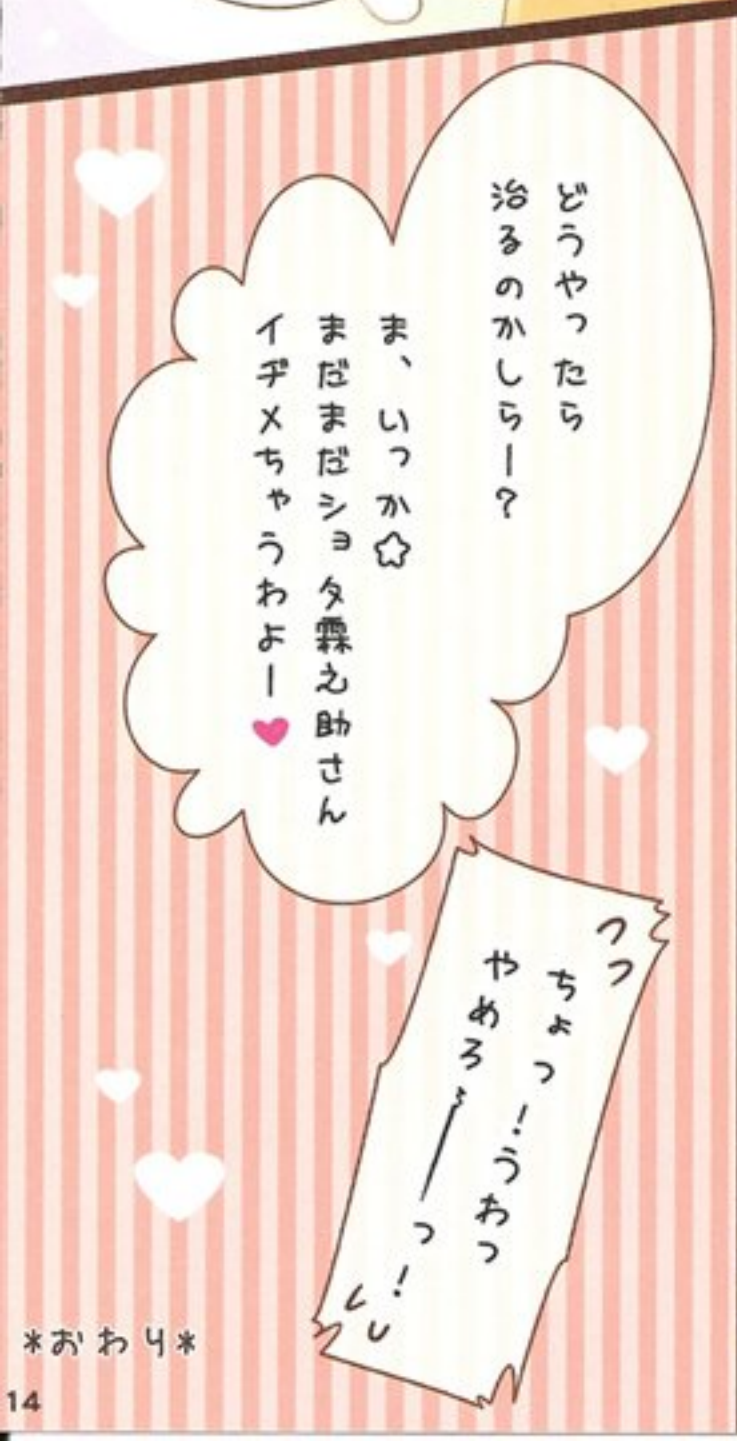 どうやったら
治るのかしらー?
ま、いっか☆
まだまだショタ霖之助さん
イヂメちゃうわよー♥
ちょっ!うわっ
やめろぉーーっ!
*おわり*
14